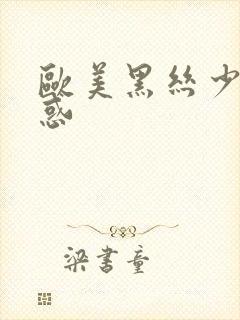 歐美黑絲少
惑
梁書童